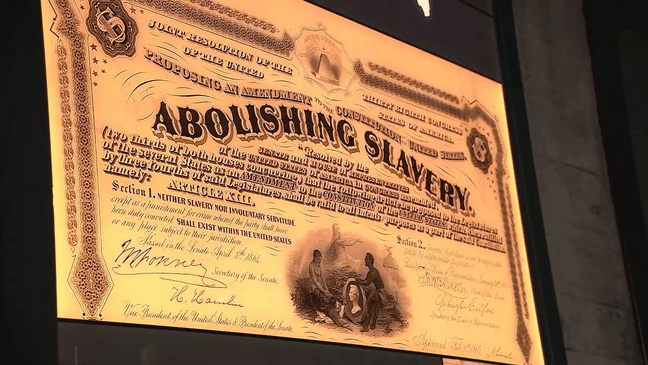 JOINT RESOLUTION OF THE
THIRTY EIGHTH CONGRESS
OF THE UNITED
STATES OF AMERICA,
PROPOSING AN AMENDMENT TO THE CONSTITUTION UNITED STATES
ABOLISHING SLAVERY.
"Resolved by the
SENATE AND HOUSE OF REPRESENTATIVES
of the UNITED STATES of america IN CONGRESS
(two thirds of both houses concurring) that the following be proposed to the Legislatures
of the several States as an AMENDMENT to the CONSTITUTION of the UNITED STATES which when ratified
by three fourths of said Legislatures, shall be valid to all intents purposes as a part of said Constitution
namely: ARTICLE XIII.
Section 1. NEITHER SLAVERY NOR INVOLUNTARY SERVITUDE
except as a punishment for crime whereof the party shall have
been duly convicted SHALL EXIST WITHIN THE UNITED STATES
or any place subject to their jurisdiction.
Passed in the Senate April 8th 1864
Secretary of the Senate.
H. Hamlin
Vice President of the United States & President of the Senate
Section 2. Congress shall have power
Speaker of the House of Representatives
Approved Feb. 1st 1865